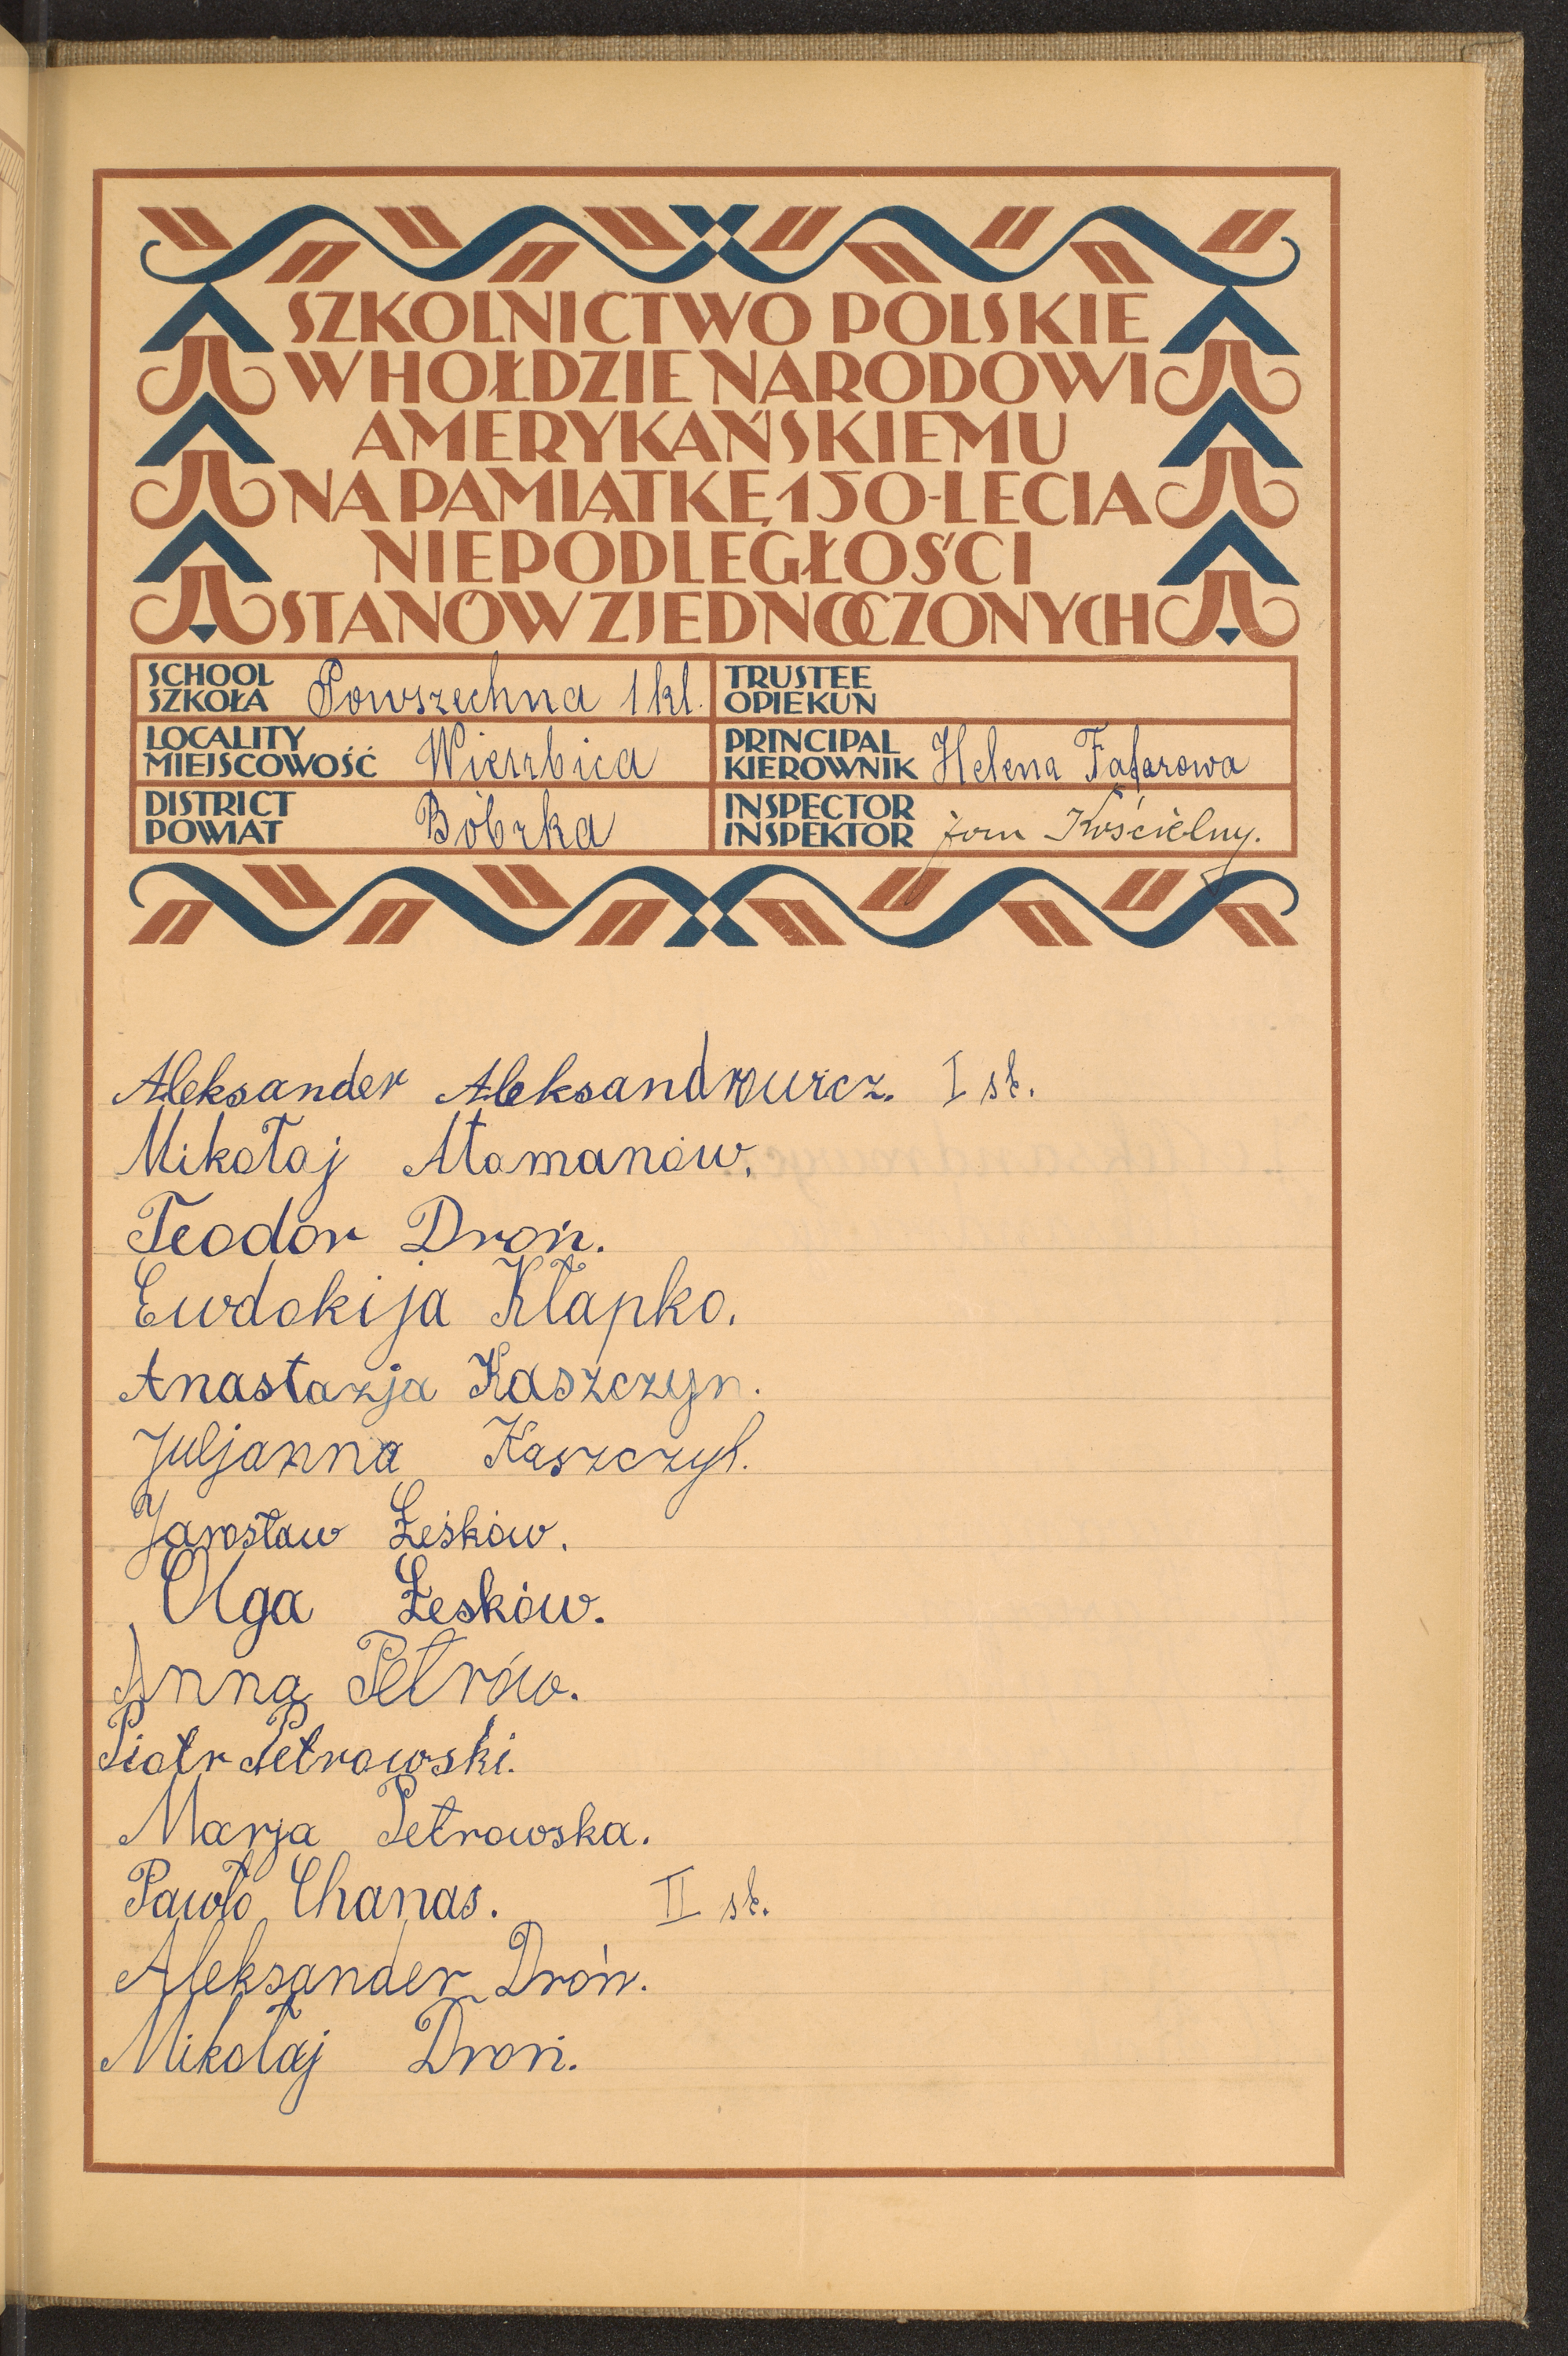 SZKOLNICTWO POLSKIE
W HOŁDZIE NARODOWI
AMERYKAŃSKIEMU
NA PAMIĄTKĘ 150-LECIA
NIEPODLEGŁOŚCI
STANÓW ZJEDNOCZONYCH
SCHOOL
SZKOŁA Powszechna 1 kl.
TRUSTEE
OPIEKUN
LOCALITY
MIEJSCOWOŚĆ Wierzbica
PRINCIPAL
KIEROWNIK Helena Fafarowa
DISTRICT
POWIAT Bóbrka
INSPECTOR
INSPEKTOR Kościelny.
Aleksander Aleksandrowicz. I st.
Mikołaj Atamanów.
Teodor Droń.
Ewdokija Kłapko.
Anastazja Kaszczyn.
Juljanna Kaszczył.
Jarosław Łeśków.
Olga Łesków.
Anna Petrów.
Piotr Petrowski.
Marja Petrowska.
Pawło Chanas. II st.
Aleksander Droń.
Mikołaj Droń.